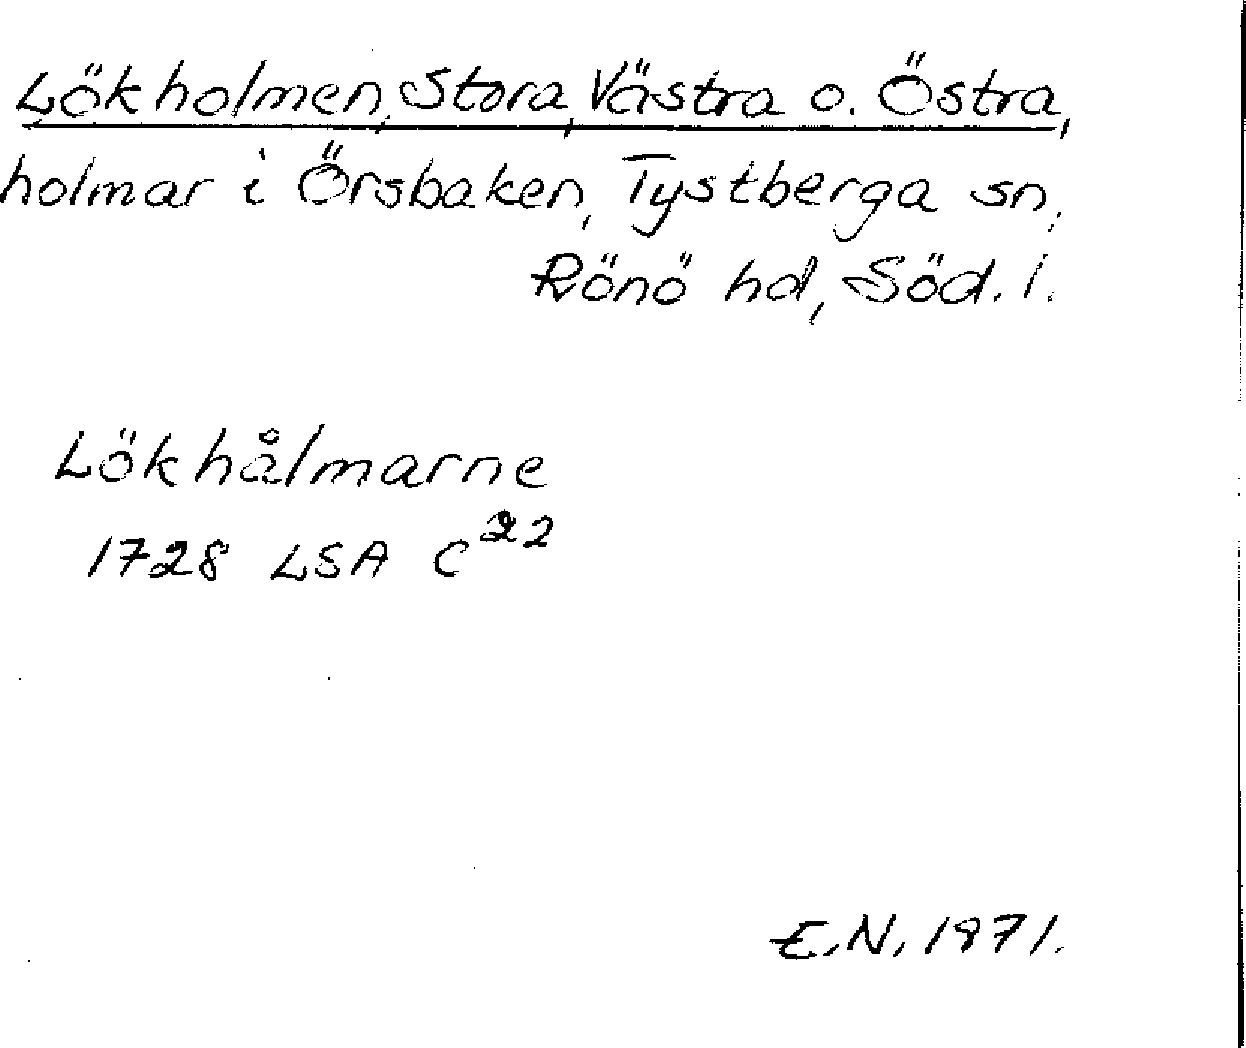 Lökholmen, Stora, Västra o. Östra,
holmar i Örsbaken, Tystberga sn,
Rönö hd, Söd. l.
Lökhålmarne
1728 LSA C22
E.N, 1971.